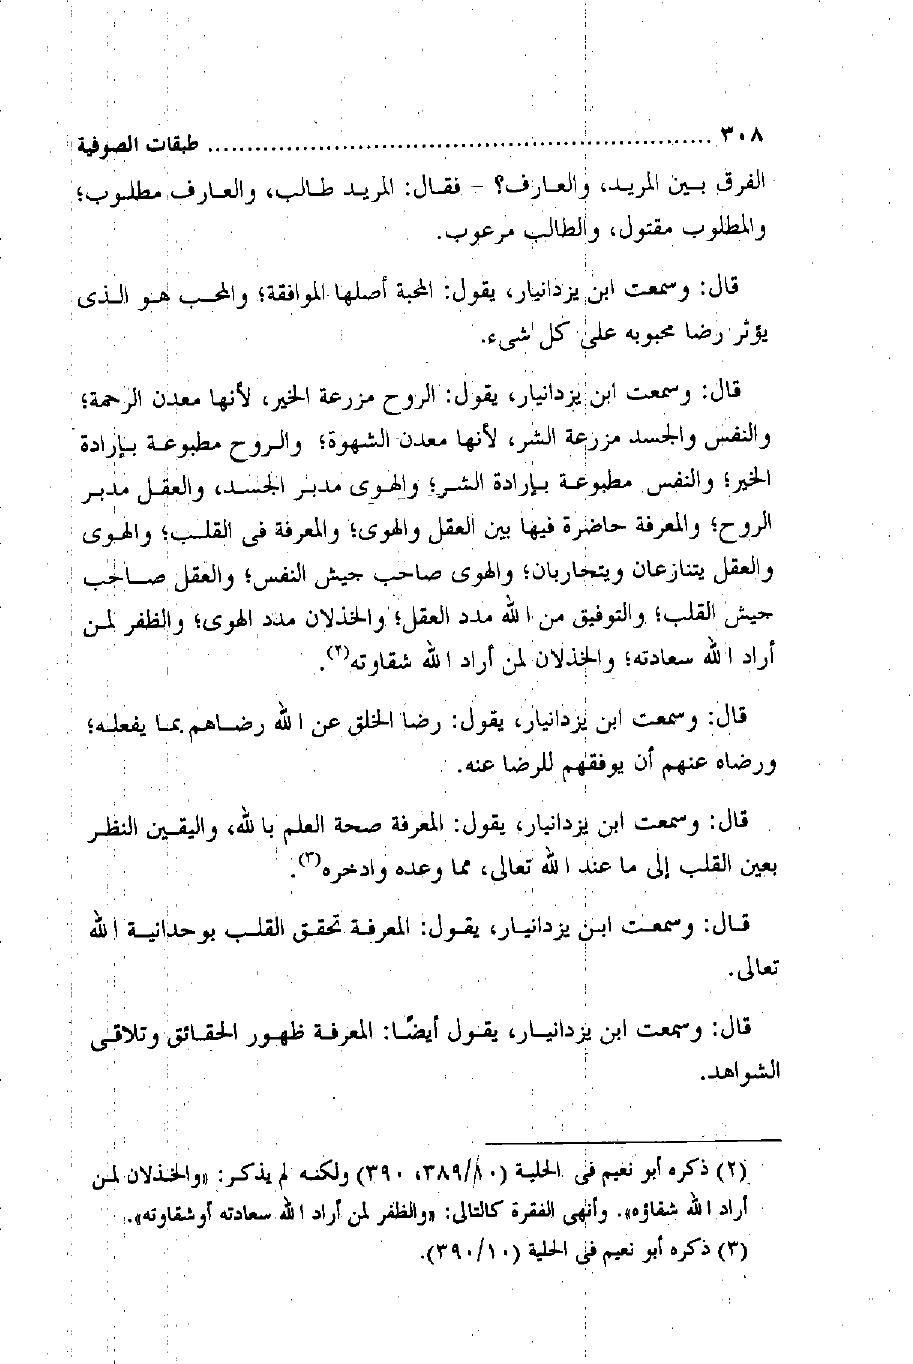 ٣٠٨ ........................................................ طبقات الصوفية
الفرق بين المريد، والعارف؟ - فقال: المريد طالب، والعارف مطلوب؛
والمطلوب مقتول، والطالب مرعوب.
قال: وسمعت ابن يزدانيار، يقول: المحبة أصلها الموافقة؛ والمحب هو الذى
يؤثر رضا محبوبه على كل شىء.
قال: وسمعت ابن يزدانيار، يقول: الروح مزرعة الخير، لأنها معدن الرحمة؛
والنفس والجسد مزرعة الشر، لأنها معدن الشهوة؛ والروح مطبوعة بإرادة
الخير؛ والنفس مطبوعة بإرادة الشر؛ والهوى مدبر الجسد، والعقل مدبر
الروح؛ والمعرفة حاضرة فيها بين العقل والهوى؛ والمعرفة فى القلب؛ والهوى
والعقل يتنازعان ويتحاربان؛ والهوى صاحب جيش النفس؛ والعقل صاحب
جيش القلب؛ والتوفيق من الله مدد العقل؛ والخذلان مدد الهوى؛ والظفر لمن
أراد الله سعادته؛ والخذلان لمن أراد الله شقاوته(٢).
قال: وسمعت ابن يزدانيار، يقول: رضا الخلق عن الله رضاهم بما يفعله؛
ورضاه عنهم أن يوفقهم للرضا عنه.
قال: وسمعت ابن يزدانيار، يقول: المعرفة صحة العلم بالله، واليقين النظر
بعين القلب إلى ما عند الله تعالى، مما وعده وادخره(٣).
قال: وسمعت ابن يزدانيار، يقول: المعرفة تحقق القلب بوحدانية الله
تعالى.
قال: وسمعت ابن يزدانيار، يقول أيضًا: المعرفة ظهور الحقائق وتلاقى
الشواهد.
(٢) ذكره أبو نعيم فى الحلية (٣٨٩/٨٠، ٣٩٠) ولكنه لم يذكر: «والخذلان لمن
أراد الله شقاؤه». وأنهى الفقرة كالتالى: «والظفر لمن أراد الله سعادته أو شقاوته».
(٣) ذكره أبو نعيم فى الحلية (٣٩٠/١٠).